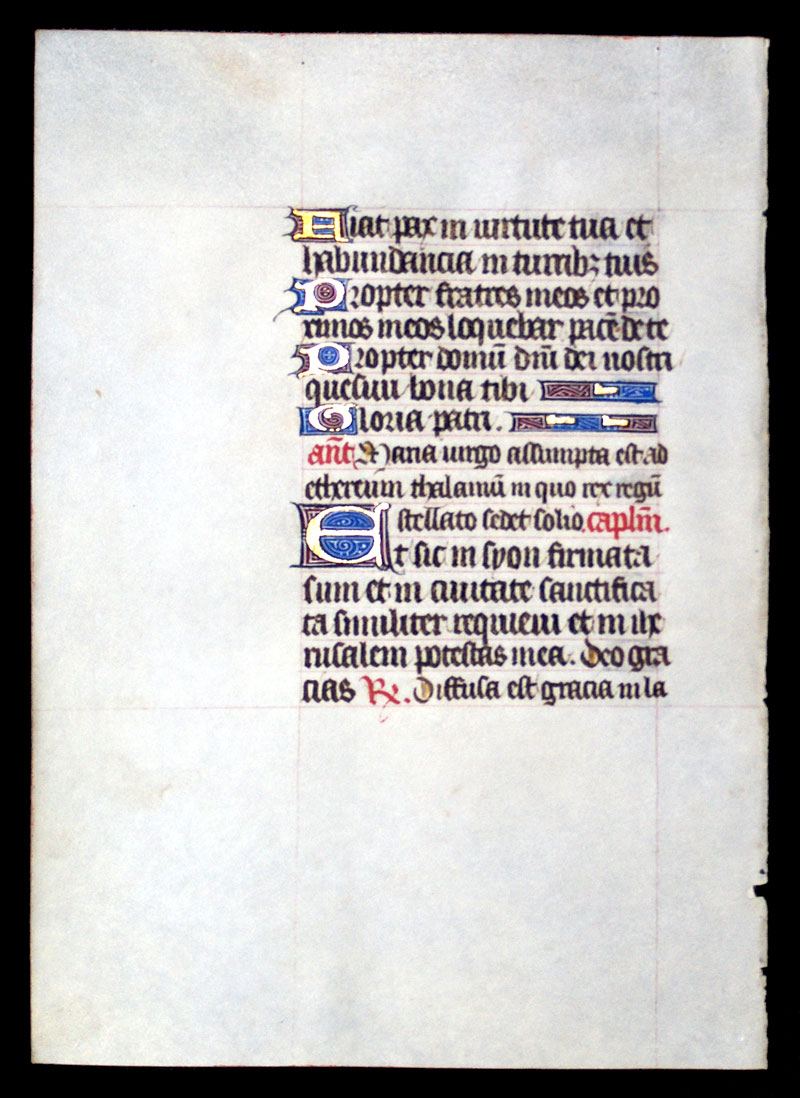 Fiat pax in uirtute tua et
habundancia in turribꝫ tuis
Propter fratres meos et pro
ximos meos loquebar pacē de te
Propter domū dn̄i dei nostri
quesiui bona tibi
Gloria patri.
an̄t Maria uirgo assumpta est ad
ethereum thalamū in quo rex regū
stellato sedet solio. caplm̄.
Et sic in syon firmata
sum et in ciuitate sanctifica
ta similiter requieui et in ihe
rusalem potestas mea. Deo gra
cias R. Diffusa est gracia in la